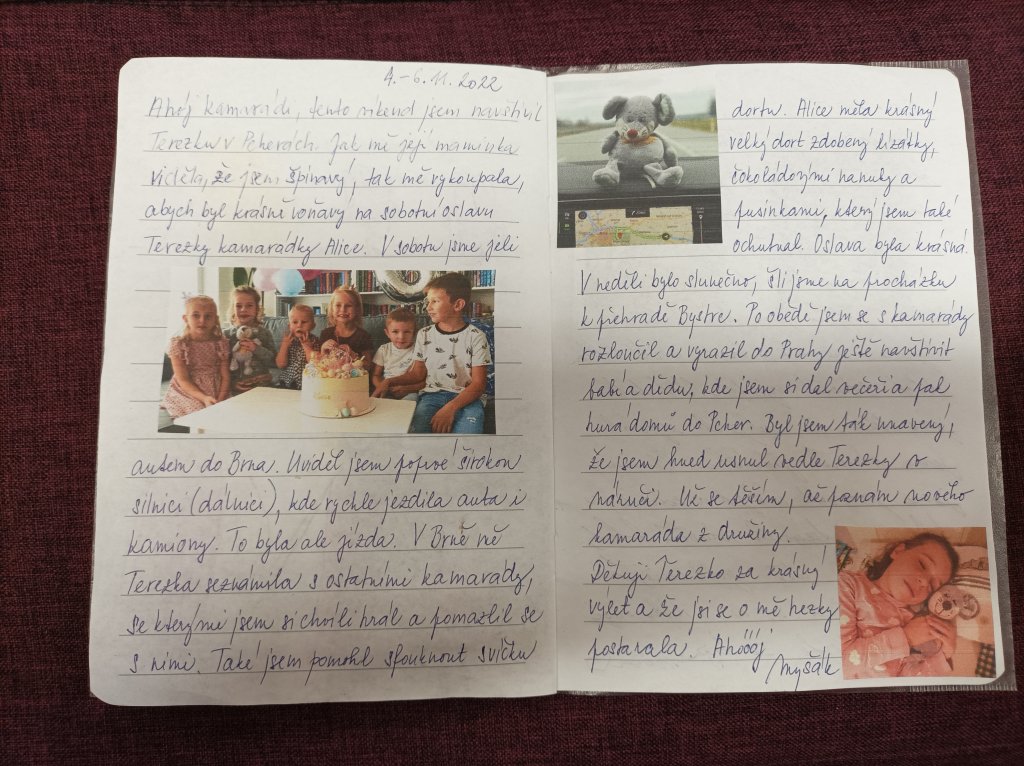 4.-6.11.2022
Ahoj kamarádi, tento víkend jsem navštívil
Terezku v Pcherách. Jak mě její maminka
viděla, že jsem špinavý, tak mě vykoupala,
abych byl krásně voňavý na sobotní oslavu
Terezky kamarádky Alice. V sobotu jsme jeli
autem do Brna. Uviděl jsem poprvé širokou
silnici (dálnici), kde rychle jezdila auta i
kamiony. To byla ale jízda. V Brně mě
Terezka seznámila s ostatními kamarády,
se kterými jsem si chvíli hrál a pomazlil se
s nimi. Také jsem pomohl sfouknout svíčku
dortu. Alice měla krásný
velký dort zdobený lízátky,
čokoládovými nanuky a
pusinkami, který jsem také
ochutnal. Oslava byla krásná.
V neděli bylo slunečno, šli jsme na procházku
k přehradě Bystrc. Po obědě jsem se s kamarády
rozloučil a vyrazil do Prahy ještě navštívit
babi a dědu, kde jsem si dal večeři a pal
hurá domů do Pcher. Byl jsem tak unavený,
že jsem hned usnul vedle Terezky v
náručí. Už se těším, až poznám nového
kamaráda z družiny.
Děkuji Terezko za krásný
výlet a že jsi se o mě hezky
postarala. Ahóój
Myšák